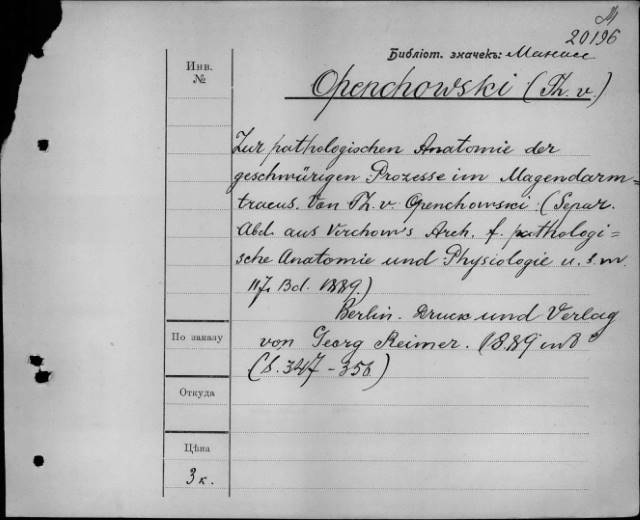 М
20196
Библіот. значекъ: Манасс
Инв.
№
Openchowski (Th. v.)
Zur pathologischen Anatomie der
geschwürigen Prozesse im Magendarm=
tracus. Von Th. v. Openchowski. (Separ.
Abd. aus Virchow's Arch. f. pathologi=
sche Anatomie und Physiologie u. s. w.
117. Bd. 1889.)
Berlin. Druck und Verlag
По заказу
von Georg Reimer. (18.89 in 8°
(S. 347-356)
Откуда
Цѣна
3 к.